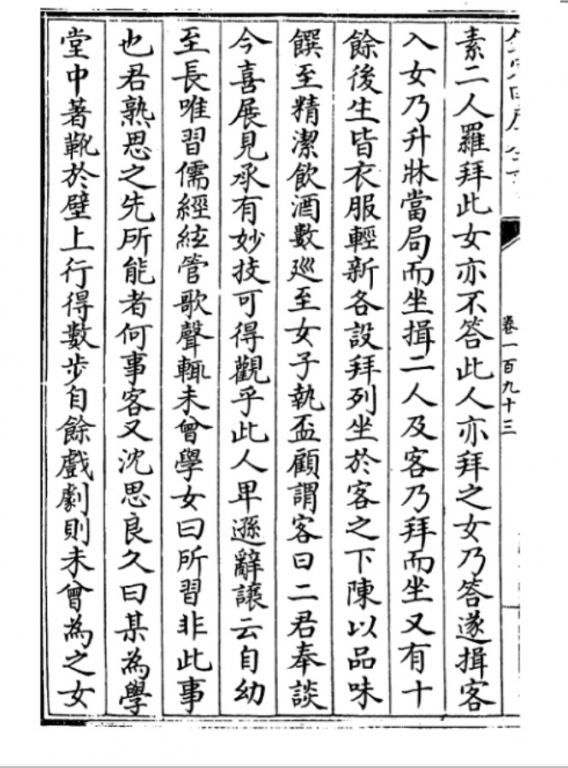 卷一百九十三
素二人羅拜此女亦不答此人亦拜之女乃答遂揖客
入女乃升牀當局而坐揖二人及客乃拜而坐又有十
餘後生皆衣服輕新各設拜列坐於客之下陳以品味
饌至精潔飲酒數巡至女子執盃顧謂客曰二君奉談
今喜展見承有妙技可得觀乎此人卑遜辭讓云自幼
至長唯習儒經絃管歌聲輒未曾學女曰所習非此事
也君熟思之先所能者何事客又沈思良久曰某為學
堂中著靴於壁上行得數步自餘戲劇則未曾為之女